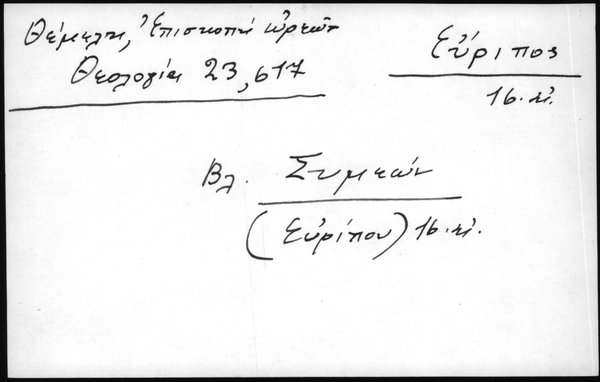 Θέμελη, Ἐπισκοπή Ὠρεῶν
Θεολογία 23, 617
Εὔριπος
16. αἰ.
Βλ. Συμεών
(Εὐρίπου) 16. αἰ.